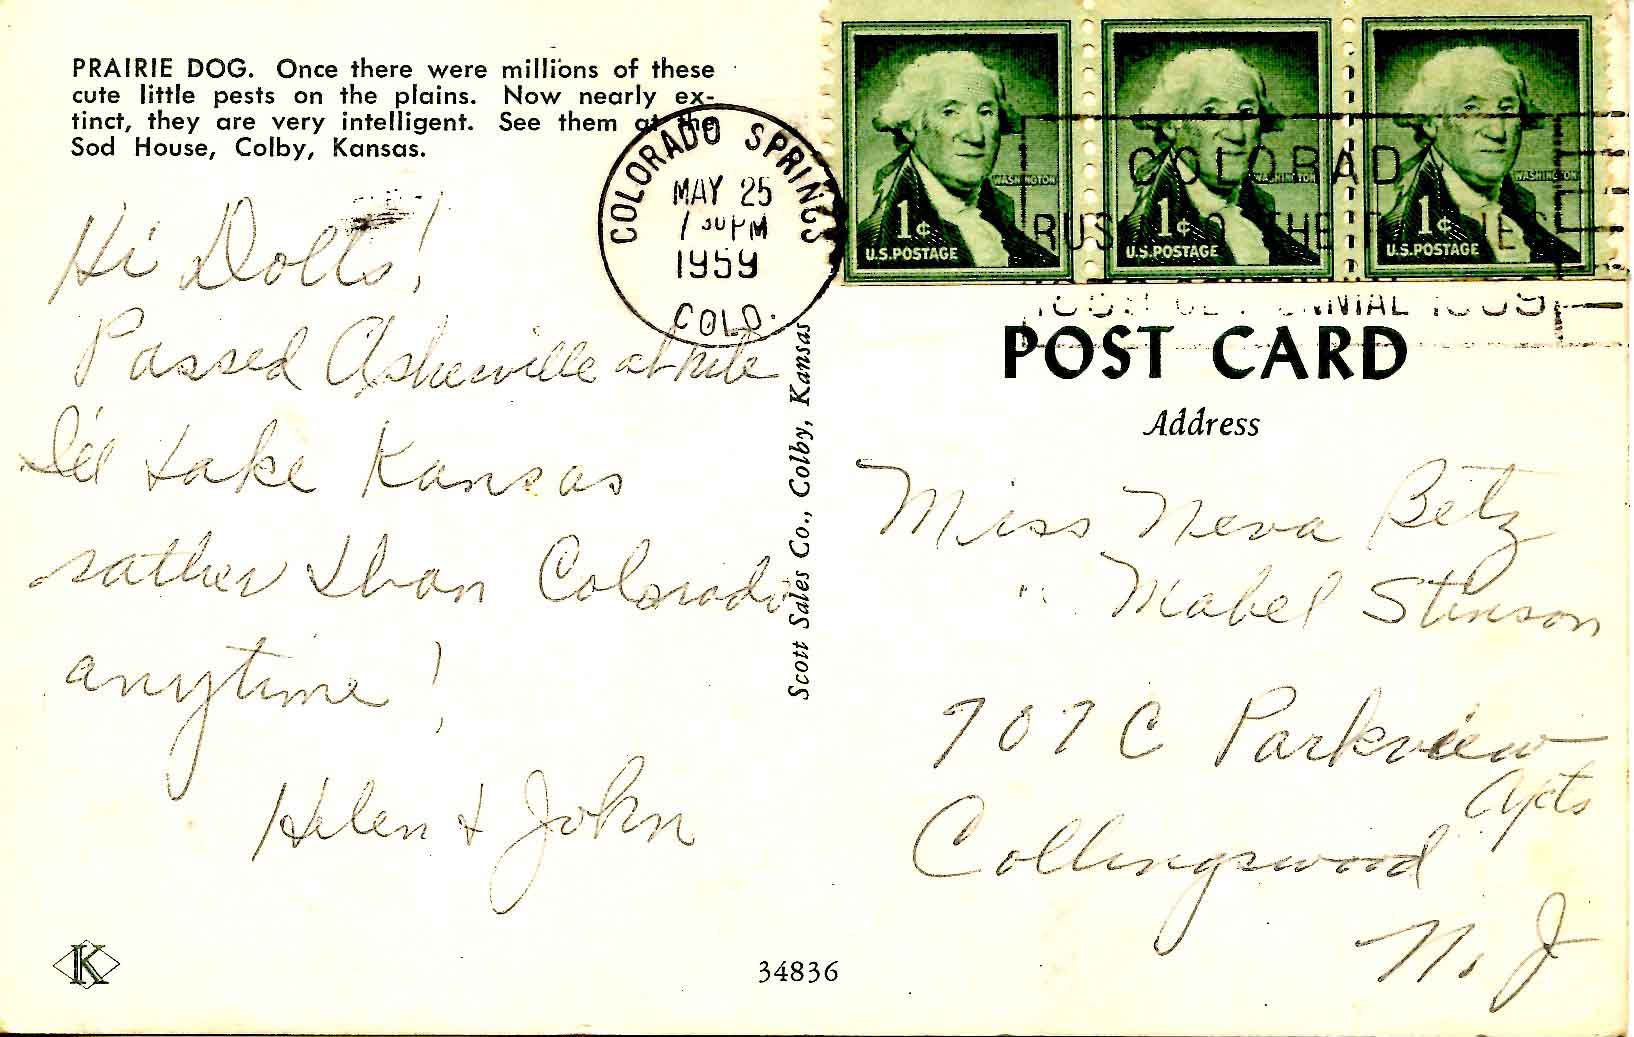 PRAIRIE DOG. Once there were millions of these
cute little pests on the plains. Now nearly ex-
tinct, they are very intelligent. See them at the
Sod House, Colby, Kansas.
Hi Dolls!
Passed Asheville at nite
I'll take Kansas
rather than Colorado
anytime!
Helen & John
K
34836
Scott Sales Co., Colby, Kansas
COLORADO SPRINGS
MAY 25
PM
1959
COLO.
WASHINGTON
1¢
U.S.POSTAGE
WASHINGTON
1¢
U.S.POSTAGE
WASHINGTON
1¢
U.S.POSTAGE
COLORAD
RUS THE
POST CARD
Address
Miss Neva Betz
" Mabel Stinson
707 C Parkview
Apts
Collingswood
N. J